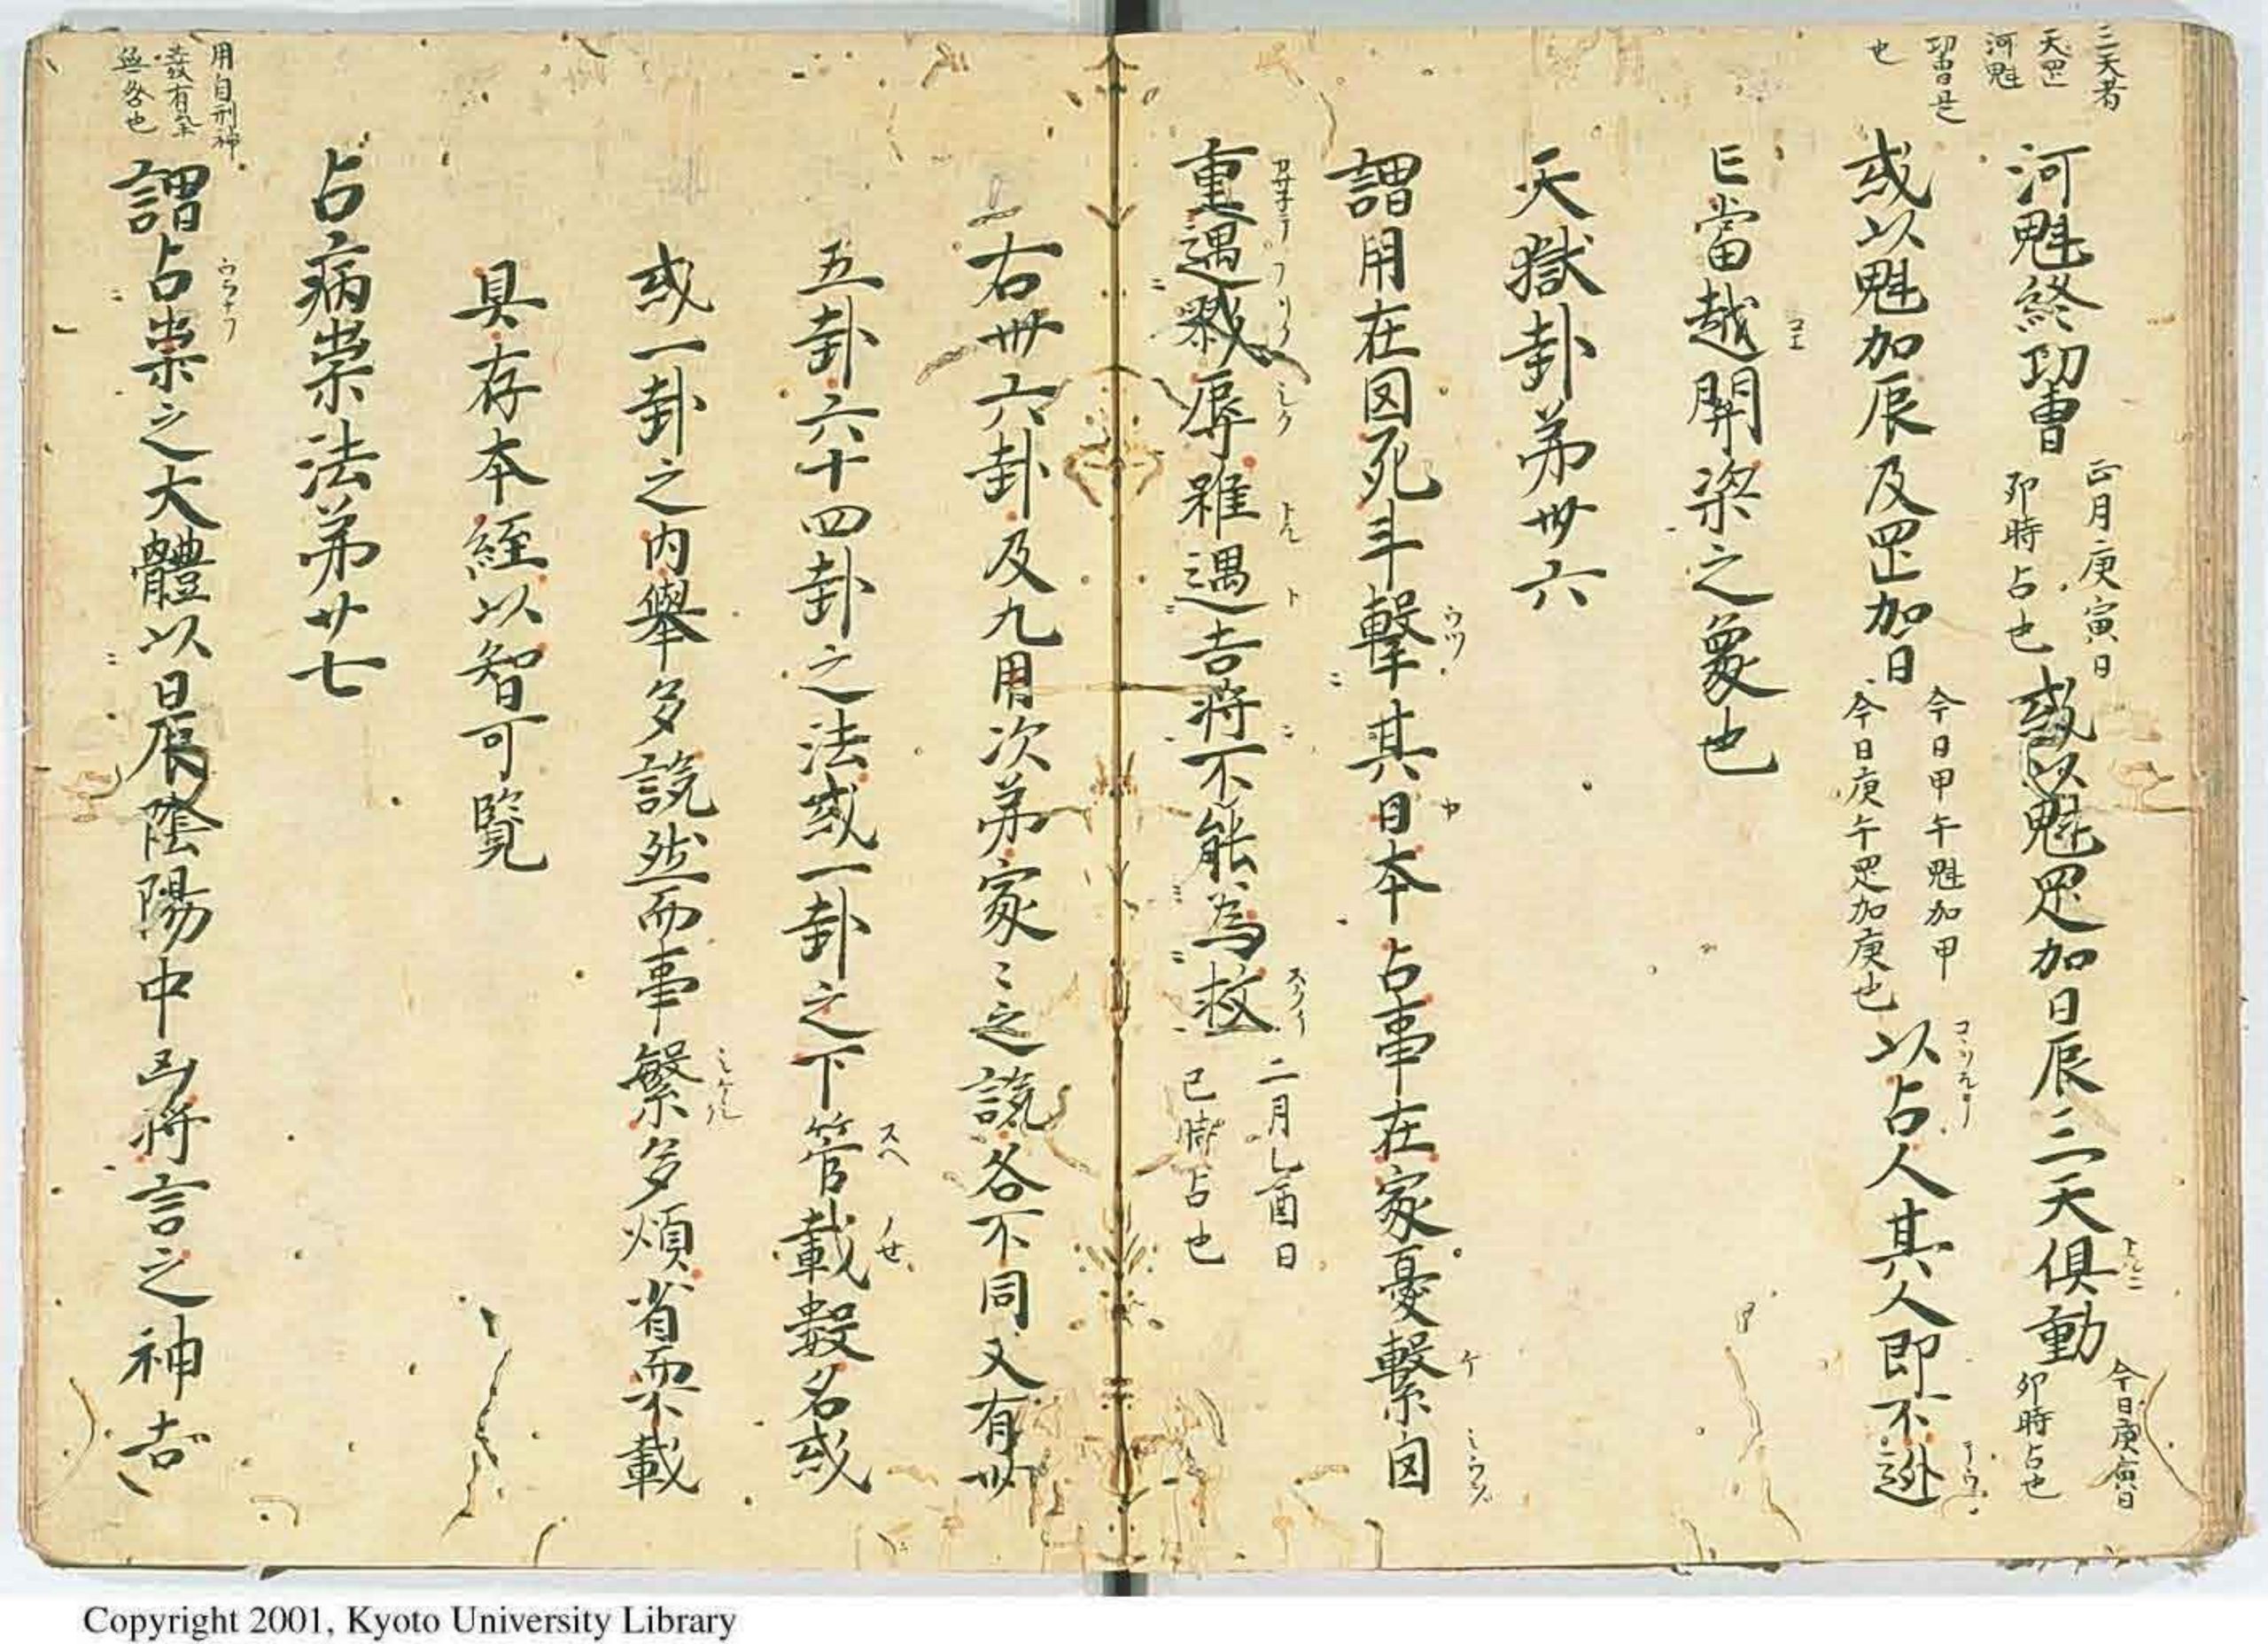 三天者
天罡
河魁
功曹是
也
河魁終功曹
正月庚寅日
卯時占也
或以魁罡加日辰三天俱動
今日庚寅日
卯時占也
或以魁加辰及罡加日
今日甲午魁加甲
今日庚午罡加庚也
以占人其人即不逃
コヽヲモテ
亡當越開梁之象也
コエ
天獄卦第卅六
謂用在囚死斗擊其日本占事在家憂繫囚
ウツ
重遇戮辱雖遇吉將不能為救
二月乙酉日
巳時占也
右卅六卦及九用次第家〻之説各不同又有卅
五卦六十四卦之法或一卦之下管載數名或
スヘ
ノせ
或一卦之内舉多説然而事繁多煩省而不載
シケル
具存本經以智可覽
占病祟法第廿七
用自刑神
發有氣
無咎也
謂占祟之大體以日辰陰陽中凶將言之神吉
ウラナフ